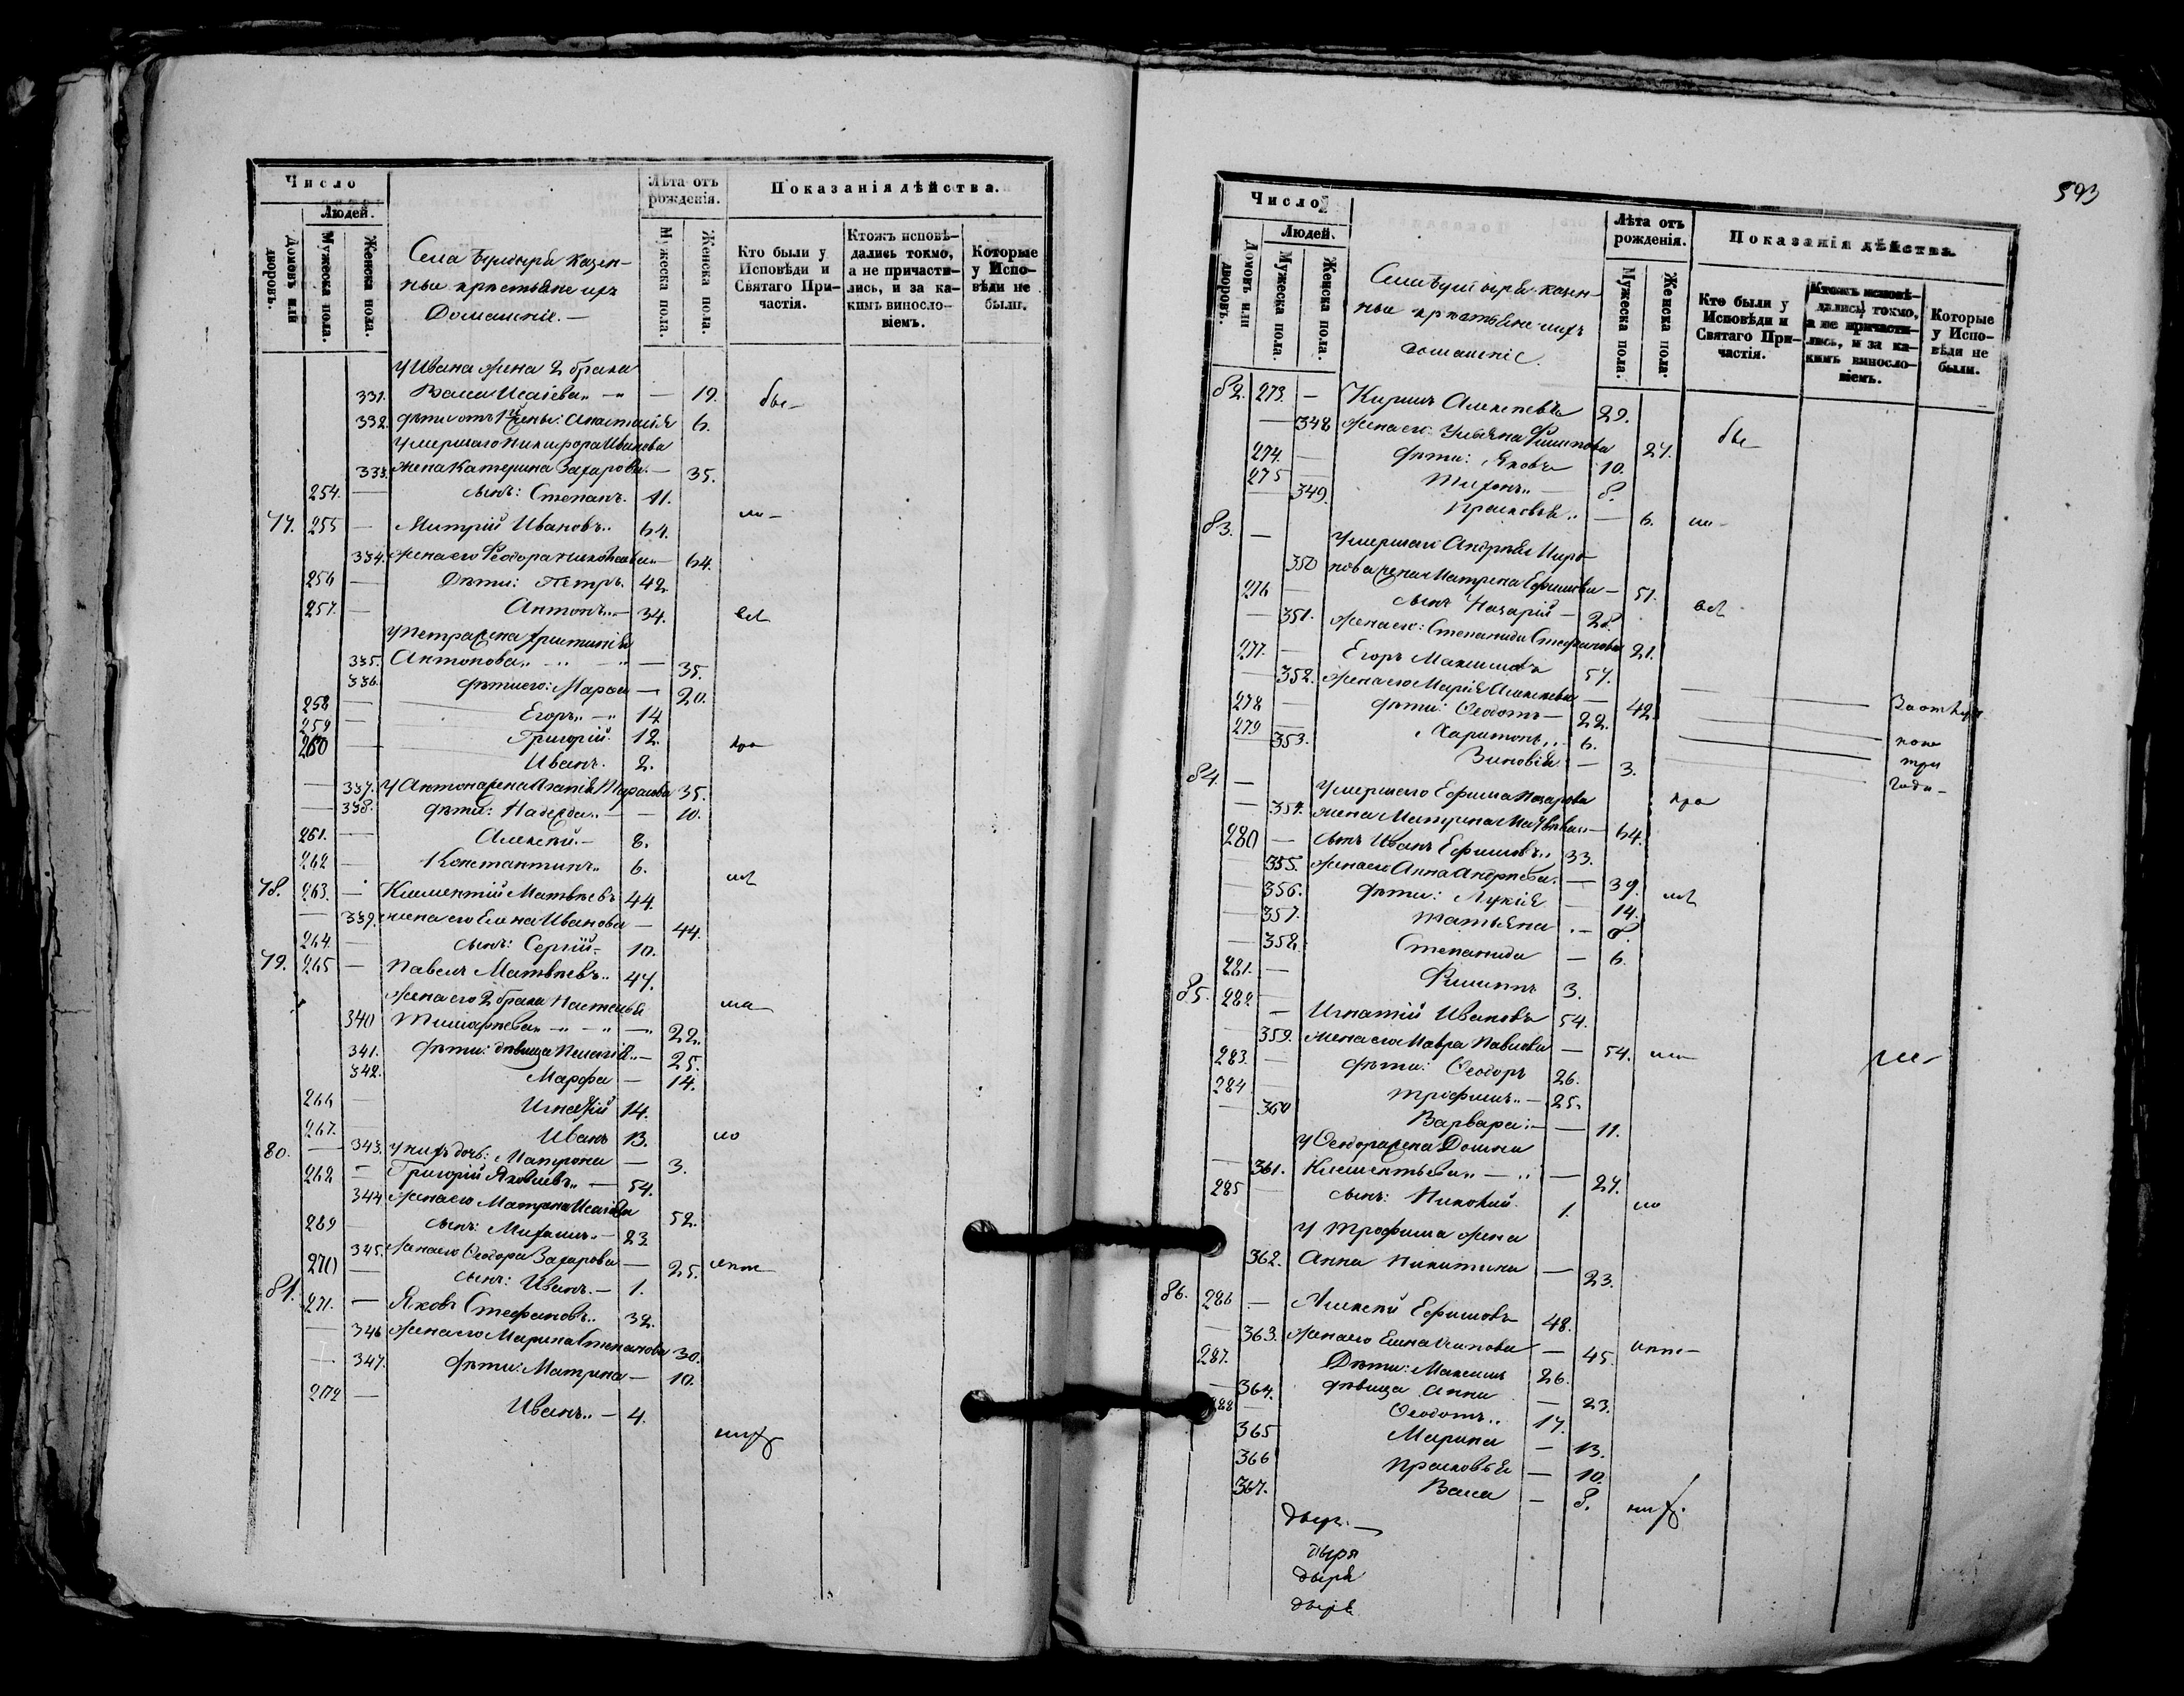 Число
Людей.
Домовъ или дворовъ.
Мужеска пола.
Женска пола.
Села казен-
ные крестьяне ихъ
Домашніе. —
Лѣта отъ рожденія.
Мужеска пола.
Женска пола.
Показанія дѣйства.
Кто были у Исповѣди и Святаго При-частія.
Ктожъ исповѣ-дались токмо, а не причасти-лись, и за ка-кимъ винословіемъ.
Которые у Испо-вѣди не были.
у Ивана жена 2 брака
331. Васса Исаіева — 19. бы-
332. дѣти отъ 1й жены: Анастасія 6.
Умершаго Никифора Иванова
333. жена Катерина Захарова — 35.
254. — сынъ: Степанъ. 11.
ли-
77. 255 — Митрій Ивановъ 61.
334. жена его Ѳеодора — 64.
256 — Дѣти: Петръ. 42.
257. — Антонъ — 34. всѣ
у Петра жена Христинія
335. Антонова — 35.
336. дѣти его: Марѳа — 20.
258 — Егоръ — 14
259 — Григорій 12.
260 — Иванъ. 2.
— 337. у Антона жена Тарасова 35.
— 338. дѣти: Надежда — 10.
261. — Алексѣй. — 8.
262 — Константинъ 6.
78. 263. — Климентій Матвѣевъ 44.
— 339. жена его Елена Иванова — 44.
264. — сынъ: Сергій — 10.
79. 265 — Павелъ Матвѣевъ 47.
жена его 2 брака Настасья
340 — 22.
341. дѣти: дѣвица Пелагія — 25.
342. Марфа — 14.
266 — Игнатій 14.
267. Иванъ 13.
80. — 343. у нихъ дочь: Матрона — 3.
268 — Григорій Яковлевъ — 54.
344 жена его Матрена Исаіева 52.
269 — сынъ: — 23
345. жена его Ѳеодора Захарова — 25.
270 — сынъ: Иванъ. — 1.
81. 271. — Яковъ Стефановъ 32.
— 346 жена его Марина Степанова 30.
— 347. дѣти: Матрена — 10.
272 — Иванъ — 4.
нихъ
593
Число
Людей.
Домовъ или дворовъ.
Мужеска пола.
Женска пола.
казен-
ные крестьяне ихъ
домашніе.
Лѣта отъ рожденія.
Мужеска пола.
Женска пола.
Показанія дѣйства.
Кто были у Исповѣди и Святаго При-частія.
Ктожъ исповѣ-дались токмо, а не причасти-лись, и за ка-кимъ винословіемъ.
Которые у Испо-вѣди не были.
82. 273. — Кирилъ Алексѣевъ 29.
— 348 жена его: Ульяна Филипова 27. бы-
274. — дѣти: Яковъ 10.
275 — Тихонъ — 8.
— 349. Прасковья — 6. ли-
83. — Умершаго Андрея Миро-
350 нова жена Матрена Ефимова — 51.
276 — сынъ Назарій — 28. всѣ
— 351. жена его: Степанида Стефанова 21.
277. — Егоръ Максимовъ 57.
— 352. жена его Марія Алексѣева — 42.
278 — дѣти: Ѳеодотъ — 22.
279 — Харитонъ 6.
— 353. Зиновія — 3.
три
года —
84. — Умершаго Ефима Назарова
— 354. жена Матрена Матвѣева — 64.
280 — сынъ Иванъ Ефимовъ 33.
355. жена его Анна Андреева. — 39.
— 356. дѣти: Лукія — 14.
— 357. Татьяна — 8.
— 358. Степанида — 6.
281. — Филиппъ 3.
85. 282. — Игнатій Ивановъ 54.
— 359. жена его Мавра Павлова — 54.
283. — дѣти: Ѳеодоръ 26.
284 — Трофимъ — 25.
— 360 Варвара — 11.
у Ѳеодора жена Домна
— 361. Климентьева — 27.
285 — сынъ: Николай. 1.
у Трофима жена
362. Анна Никитина — 23.
86. 286 — Алексѣй Ефимовъ 48.
— 363. жена его Елена — 45.
287. Дѣти: Максимъ 26.
— 364. дѣвица Анна — 23.
288 — Ѳеодотъ 17.
365 Марина — 13.
366 Прасковья — 10.
367. Васса — 8. нихъ.